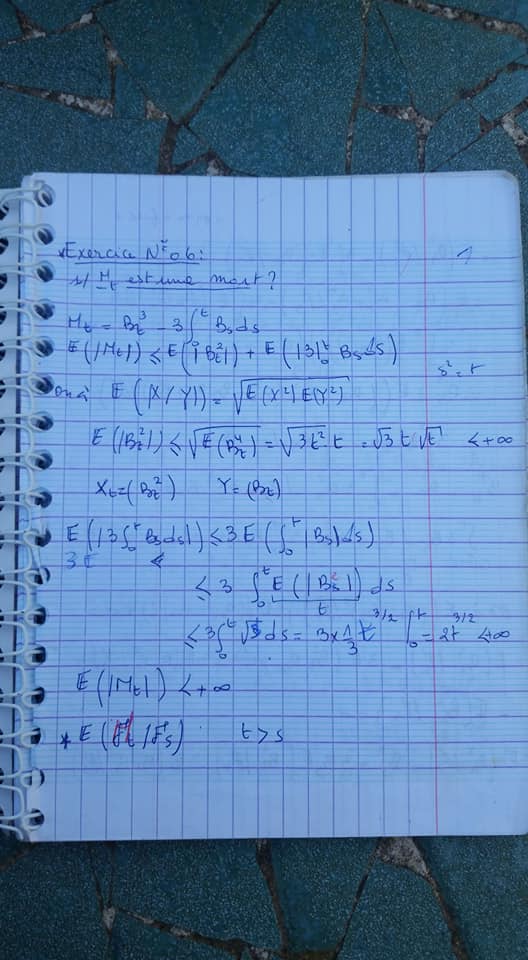 *Exercice N° 06:
1/ M_t est une mart?
M_t = B_t^3 - 3∫_0^t B_s ds
E(|M_t|) ≤ E(|B_t^2|) + E(|3∫_0^t B_s ds)
on à E(|X/Y|) = √E(X²)E(Y²) s² = t
E(|B_t^2|) ≤ √E(B_t^4) = √3t² t = √3 t √t < +∞
X_t=(B_t^2) Y=(B_t)
E(|3∫_0^t B_s ds|) ≤ 3E(∫_0^t |B_s| ds)
3t ≤
≤ 3 ∫_0^t E(|B_s^2|) ds
t
≤ 3∫_0^t √s ds = 3×1/3 t^{3/2} |_0^t = 2t^{3/2} < +∞
E(|M_t|) < +∞
* E( /F_s) t > s